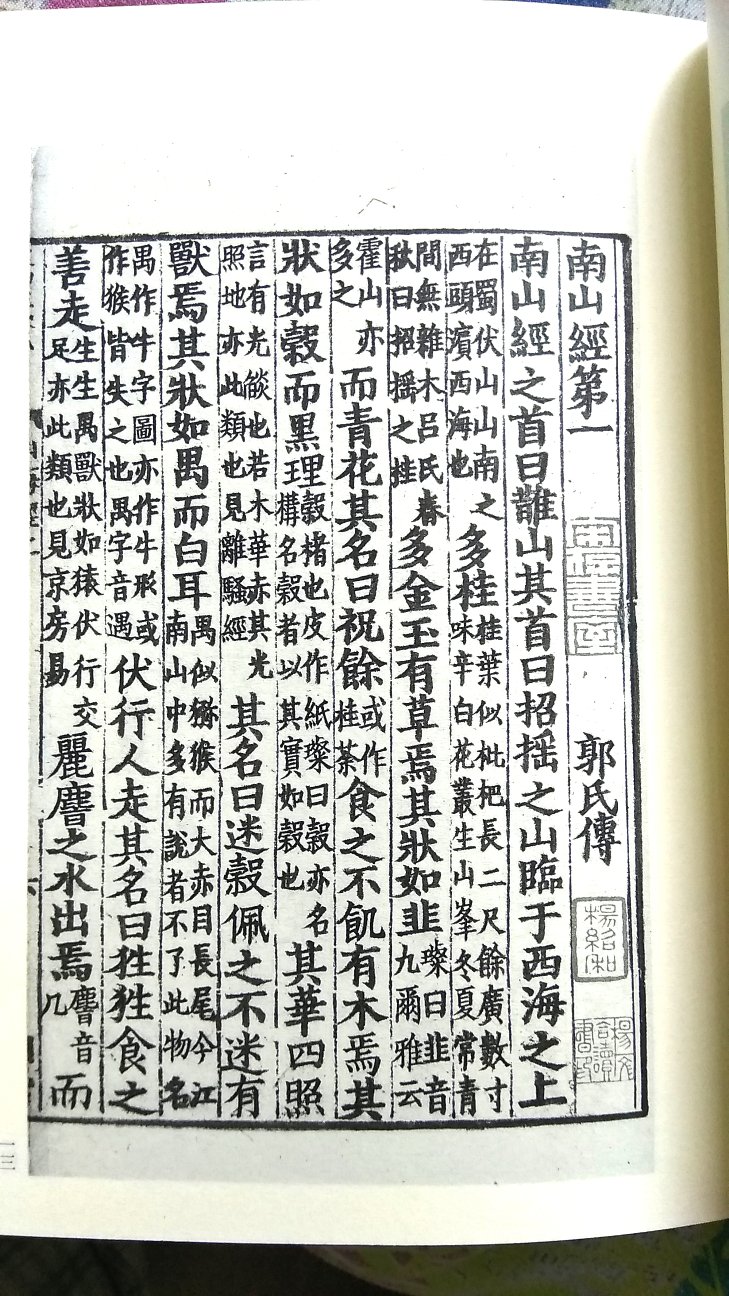 南山經第一 郭氏傳
楊紹和
南山經之首曰䧿山其首曰招揺之山臨于西海之上
在蜀伏山山南之西頭濱西海也多桂桂葉似枇杷長二尺餘廣數寸味辛白花叢生山峯冬夏常青
間無雜木呂氏春秋曰招揺之桂多金玉有草焉其狀如韭璨曰韭音九爾雅云
霍山亦多之而青花其名曰祝餘或作桂荼食之不飢有木焉其
狀如榖而黒理榖楮也皮作紙璨曰榖亦名構名榖者以其實如榖也其華四照
言有光燄也若木華赤其光照地亦此類也見離騷經其名曰迷榖佩之不迷有
獸焉其狀如禺而白耳禺似獼猴而大赤目長尾今江南山中多有說者不了此物名
禺作牛字圖亦作牛形或作猴皆失之也禺字音遇伏行人走其名曰狌狌食之
善走生生禺獸狀如猿伏行交足亦此類也見京房易麗䴢之水出焉䴢音几而